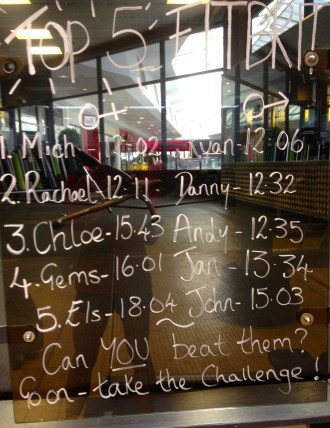 TOP 5 FITTBK!!
♀ ♂
1. Mich 12:02 Ryan-12:06
2. Rachael-12:11- Danny-12:32
3. Chloe-15.43 Andy-12:35
4. Gems-16.01 Jan-13.34
5. Els-18.04 ~ John-15.03
Can YOU beat them?
Go on-take the Challenge!